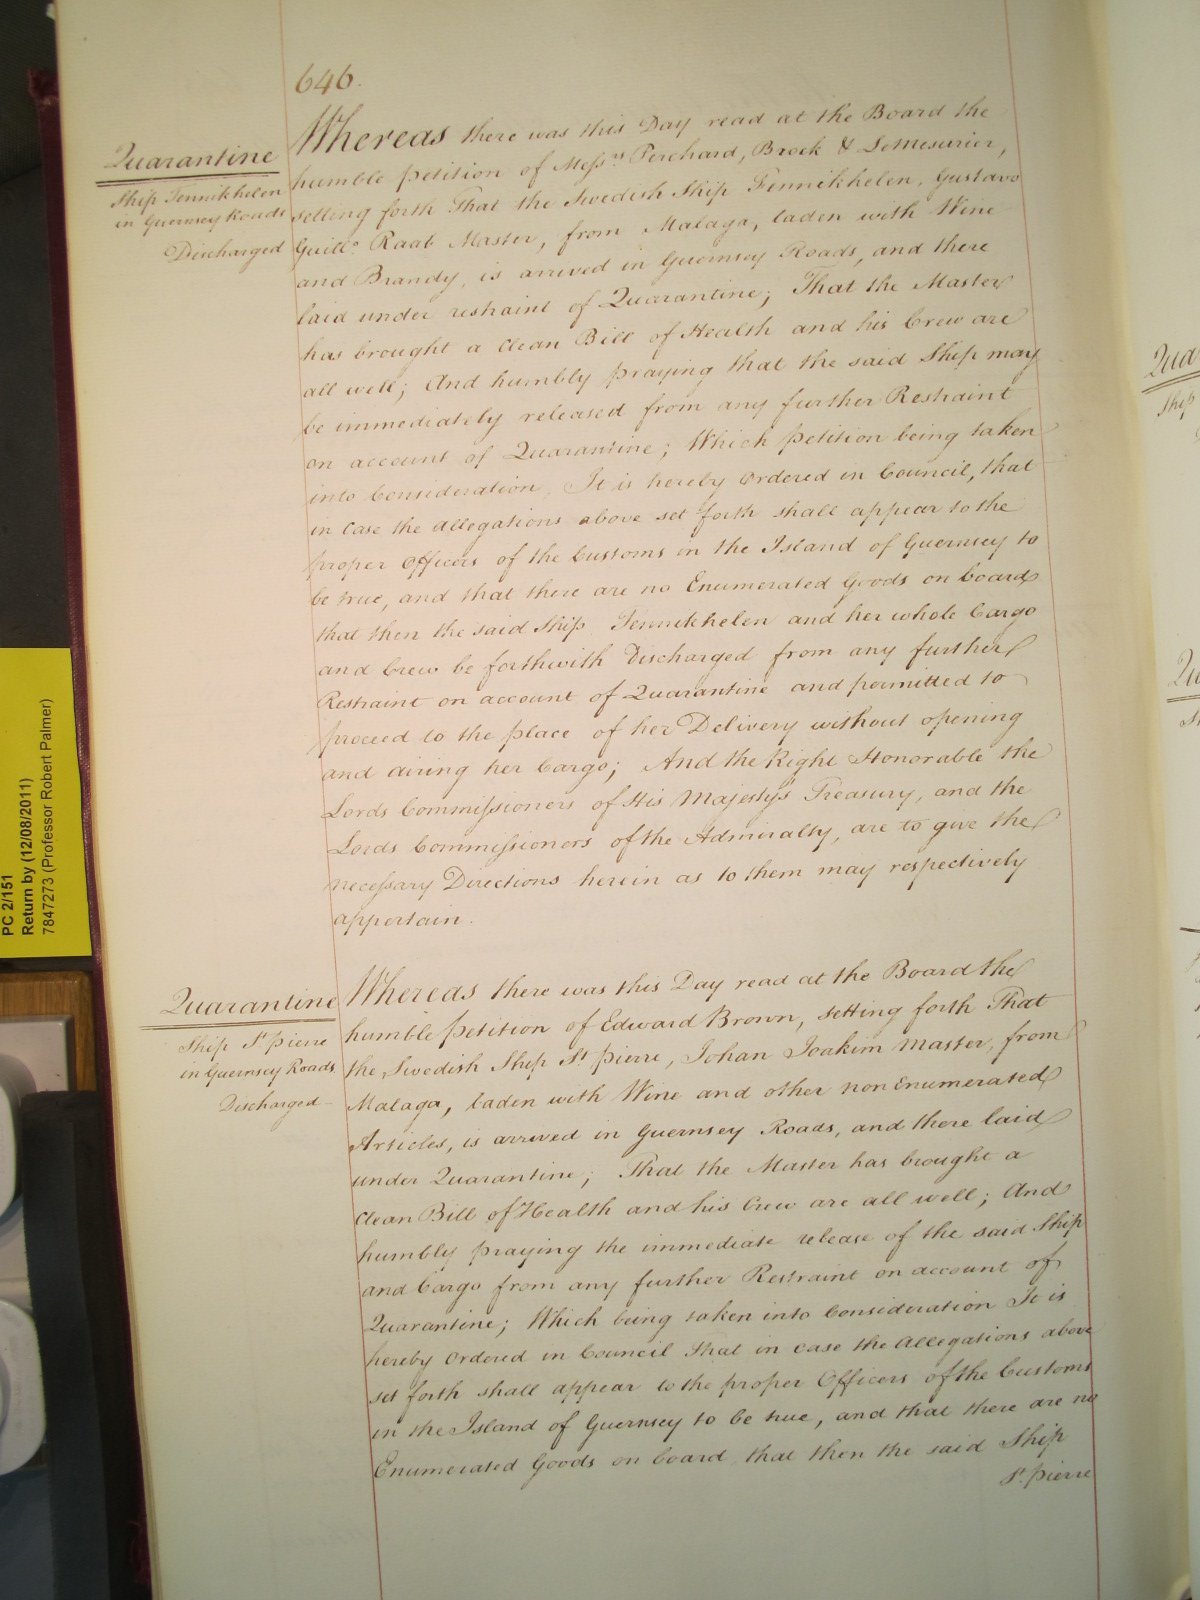 646.
Quarantine
Ship Fennikhelen
in Guernsey Roads
Discharged
Whereas there was this Day read at the Board the
humble petition of Messrs Perchard, Brock & LeMesurier,
setting forth That the Swedish Ship Fennikhelen, Gustavo
Guillo. Raab Master, from Malaga, laden with Wine
and Brandy, is arrived in Guernsey Roads, and there
laid under restraint of Quarantine; That the Master
has brought a clean Bill of Health and his Crew are
all well; And humbly praying that the said Ship may
be immediately released from any further Restraint
on account of Quarantine; Which petition being taken
into Consideration, It is hereby Ordered in Council, that
in Case the Allegations above set forth shall appear to the
proper Officers of the Customs in the Island of Guernsey to
be true, and that there are no Enumerated Goods on board
that then the said Ship Fennikhelen and her whole Cargo
and Crew be forthwith Discharged from any further
Restraint on account of Quarantine and permitted to
proceed to the place of her Delivery without opening
and airing her Cargo; And the Right Honorable the
Lords Commissioners of His Majesty's Treasury, and the
Lords Commissioners of the Admiralty, are to give the
necessary Directions herein as to them may respectively
appertain.
Quarantine
Ship St pierre
in Guernsey Roads
Discharged
Whereas there was this Day read at the Board the
humble petition of Edward Brown, setting forth That
the Swedish Ship St. pierre, Johan Joakim Master, from
Malaga, laden with Wine and other non Enumerated
Articles, is arrived in Guernsey Roads, and there laid
under Quarantine; That the Master has brought a
Clean Bill of Health and his Crew are all well; And
humbly praying the immediate release of the said Ship
and Cargo from any further Restraint on account of
Quarantine; Which being taken into Consideration It is
hereby Ordered in Council That in case the Allegations above
set forth shall appear to the proper Officers of the Customs
in the Island of Guernsey to be true, and that there are no
Enumerated Goods on board that then the said Ship
St. pierre
PC 2/151
Return by (12/08/2011)
7847273 (Professor Robert Palmer)
Qua
Ship